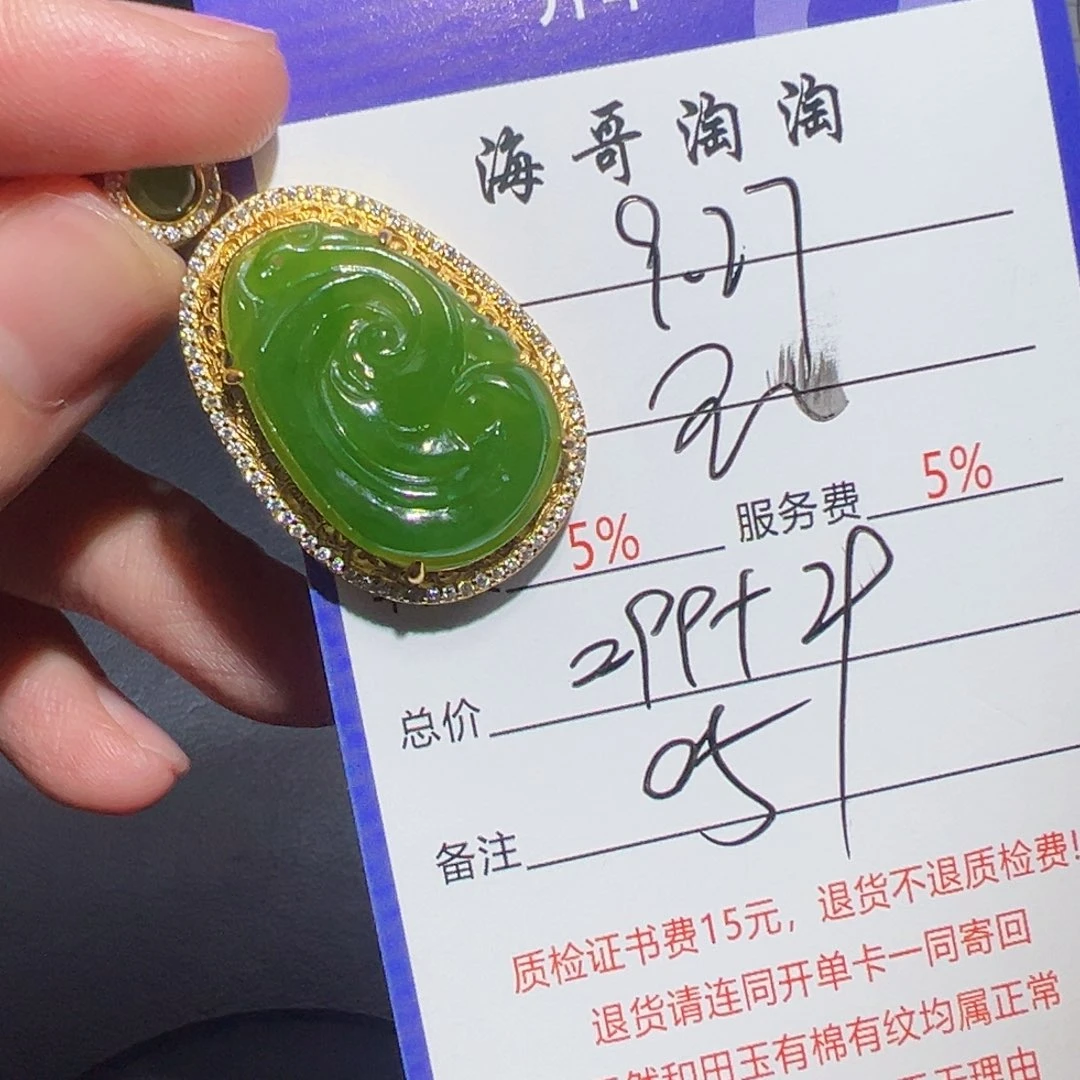 海哥淘淘
9.27
5% 服务费 5%
总价 299+24
备注 05
质检证书费15元，退货不退质检费!
退货请连同开单卡一同寄回
然和田玉有棉有纹均属正常
无理由